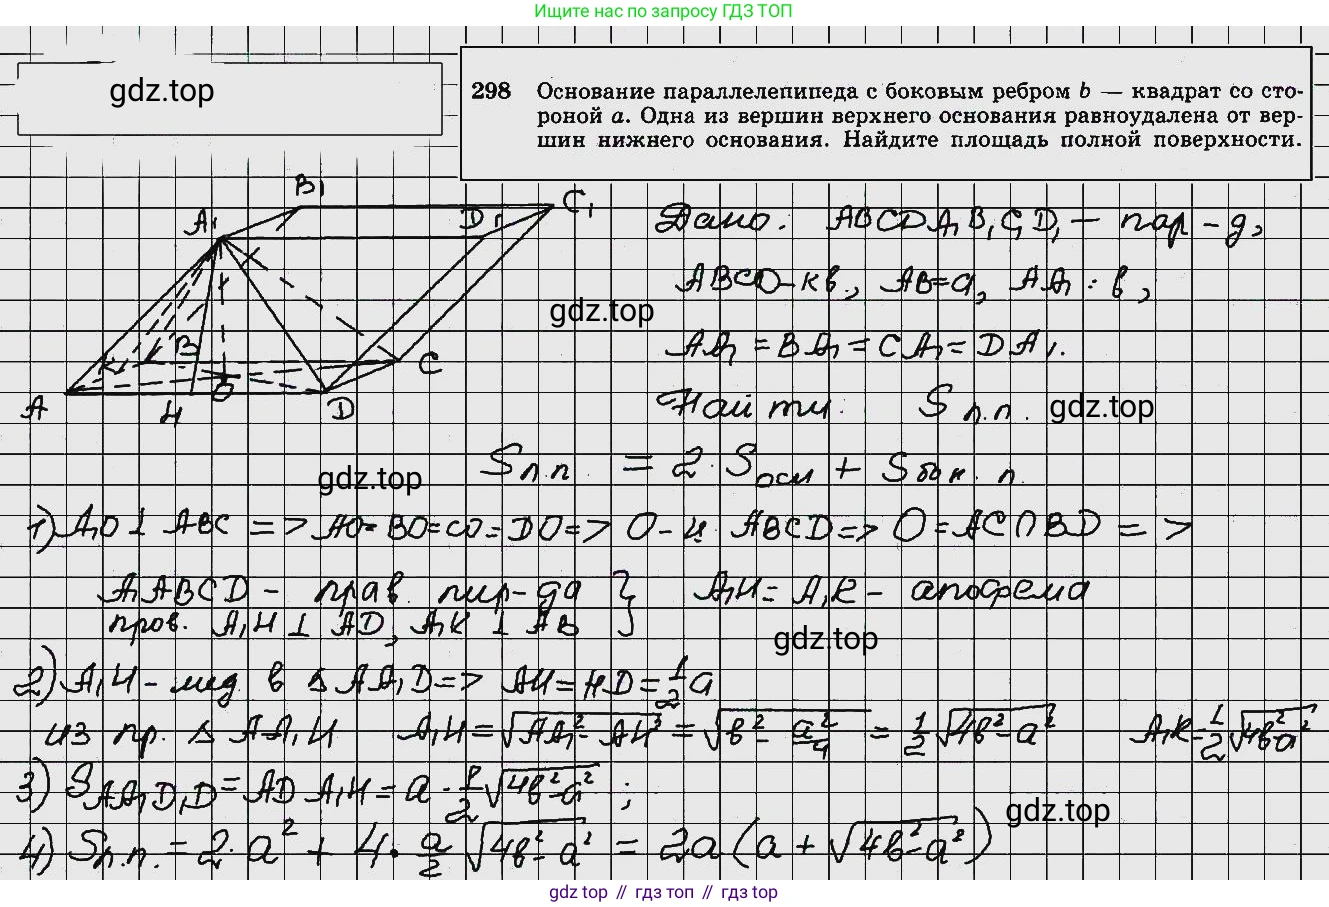 Ищите нас по запросу ГДЗ ТОП
gdz.top
298 Основание параллелепипеда с боковым ребром b — квадрат со сто-
роной a. Одна из вершин верхнего основания равноудалена от вер-
шин нижнего основания. Найдите площадь полной поверхности.
B₁
C₁
A₁
D₁
B
K
C
O
A
H
D
Дано: ABCDA₁B₁C₁D₁ – пар-д,
ABCD-кв, AB=a, AA₁=b,
gdz.top
AA₁=BA₁=CA₁=DA₁.
Найти: Sп.п. gdz.top
Sп.п = 2·Sосн + Sбок.п.
gdz.top
1) A₁O⊥ABC => AO=BO=CO=DO=> O-ц. ABCD=> O=AC∩BD =>
A₁ABCD – прав. пир-да } A₁H=A₁K – апофема
пров. A₁H⊥AD, A₁K⊥AB
gdz.top
2) A₁H – мед. в ΔAA₁D => AH=HD=1/2a
из пр. ΔAA₁H A₁H=√AA₁²-AH² = √b²-a²/4 = 1/2√4b²-a² A₁K=1/2√4b²a²
3) SAA₁D₁D=AD A₁H=a·1/2√4b²-a²;
gdz.top
4) Sп.п.=2·a²+4·a/2√4b²-a² = 2a(a+√4b²-a²)
gdz top // гдз топ // gdz top